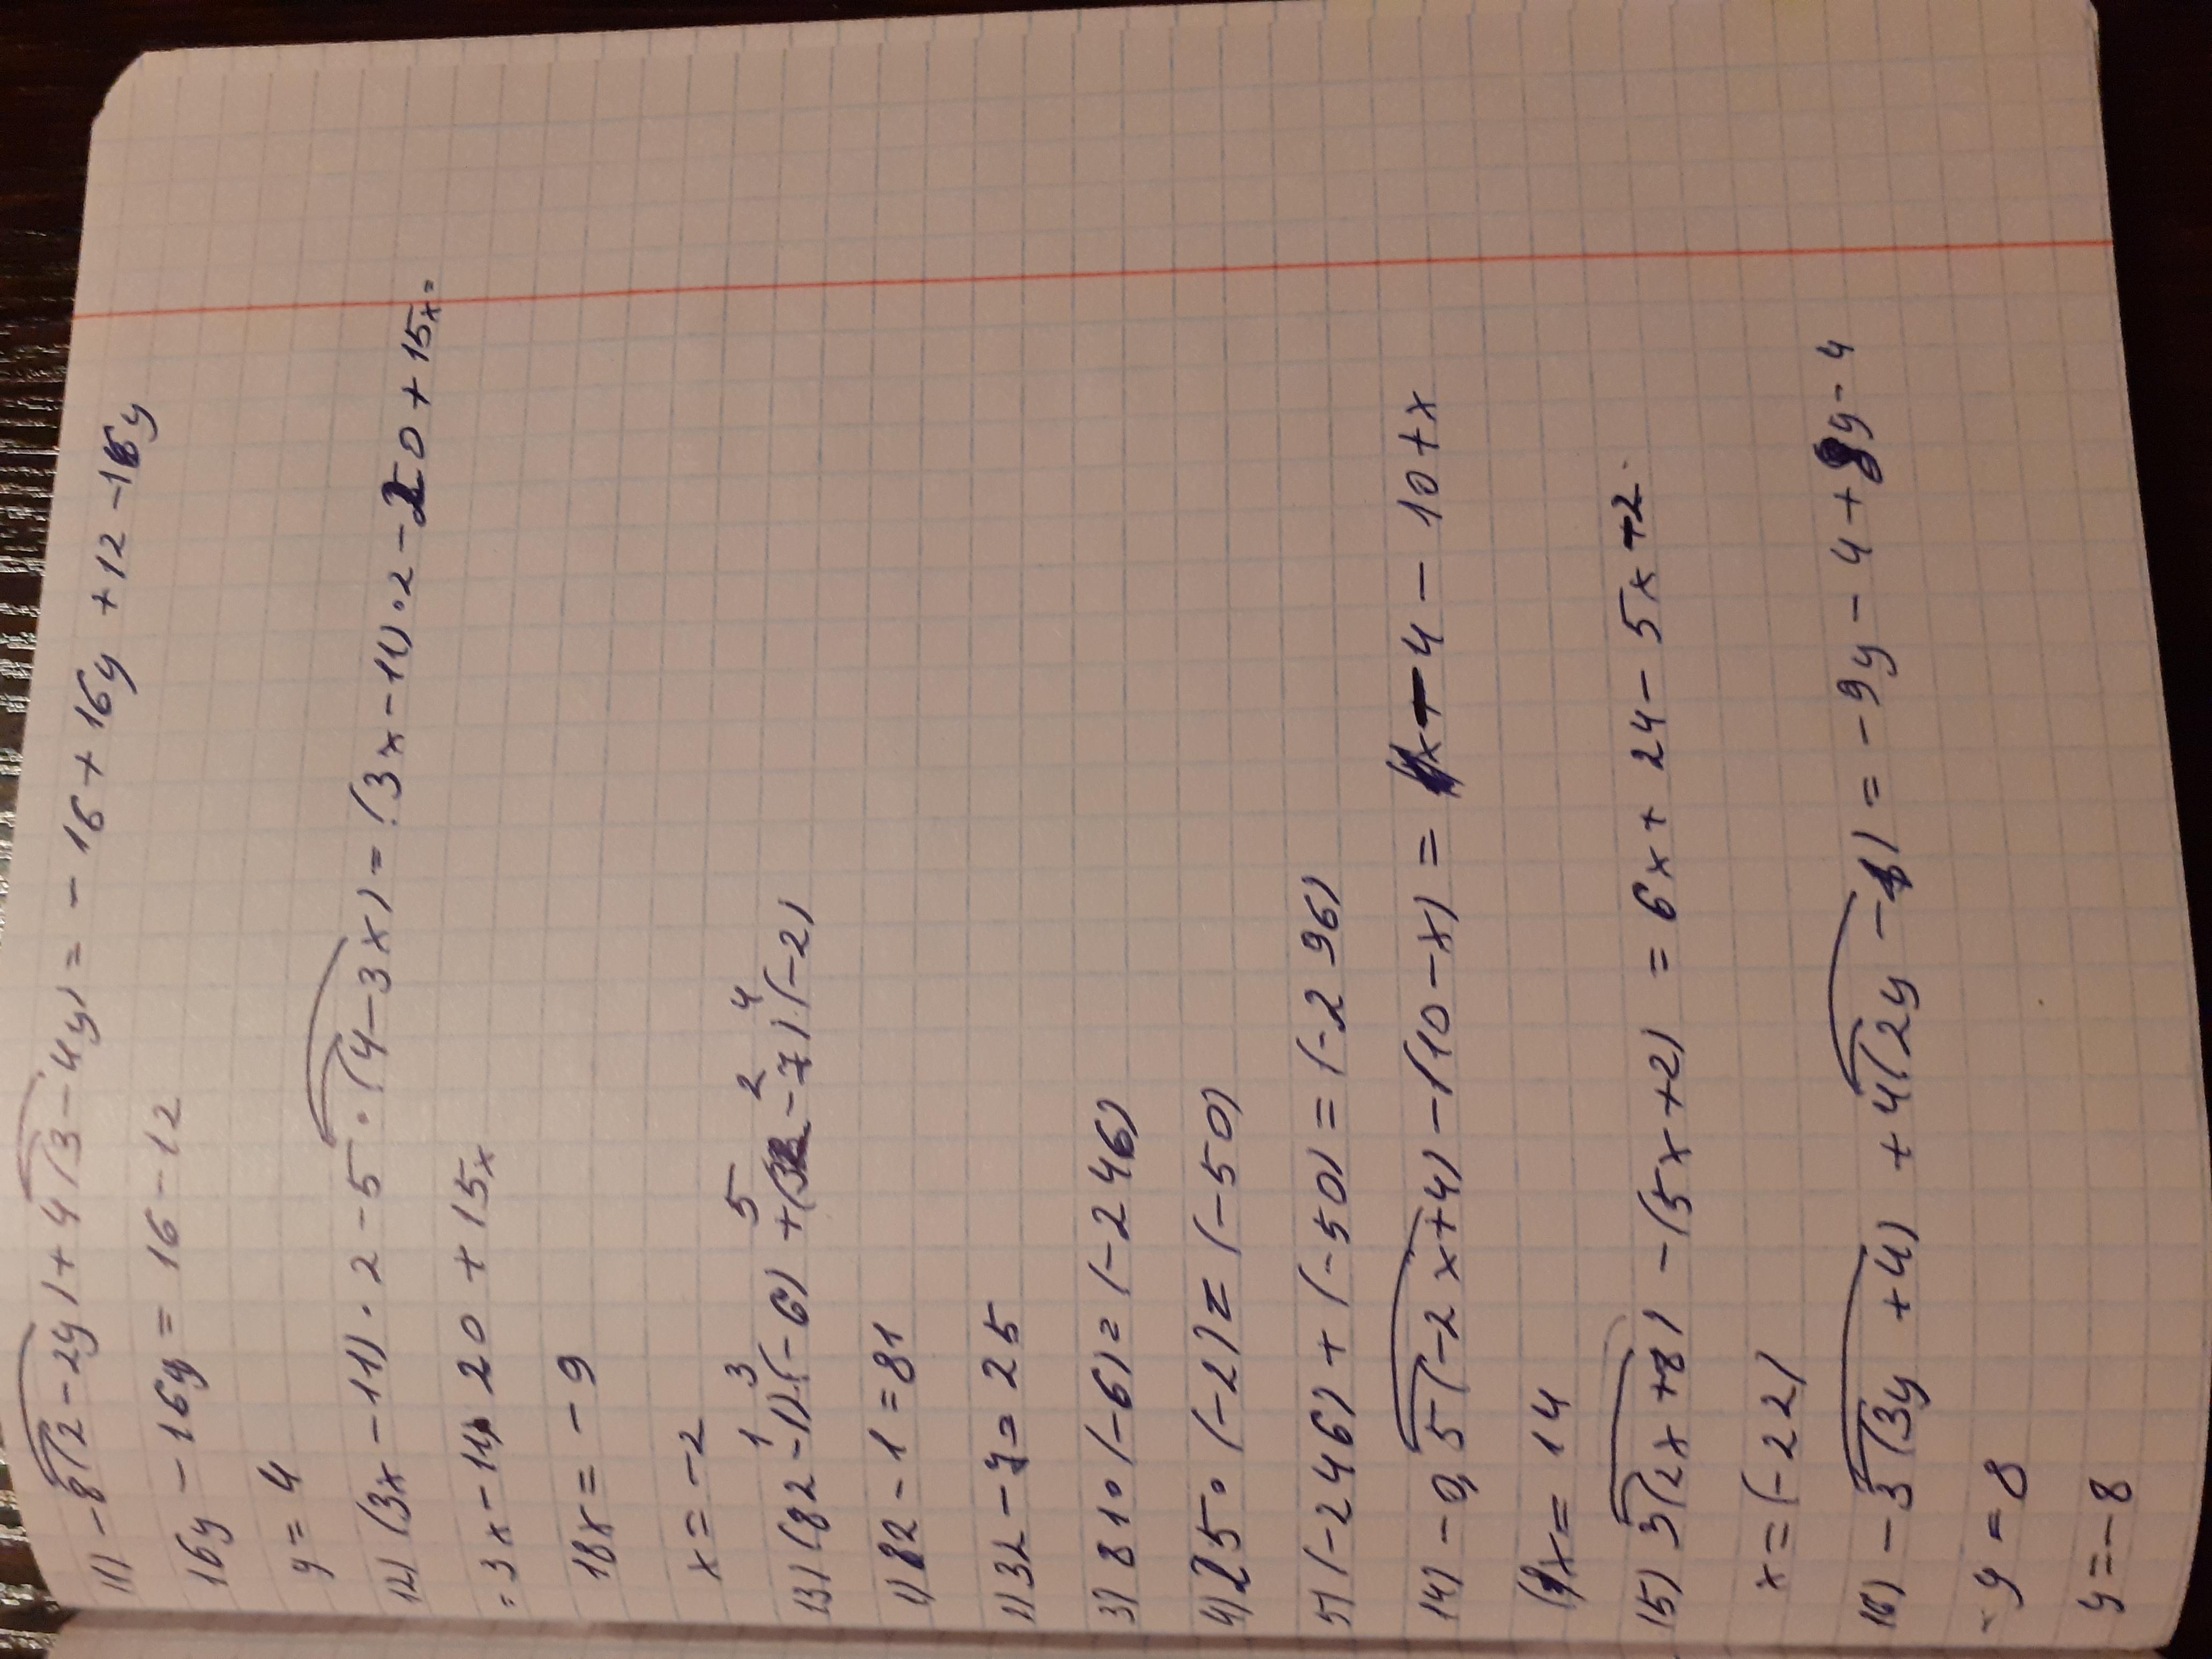 11) -8(2-2y)+4(3-4y)=-16+16y+12-16y
16y-16y=16-12
y=4
12) (3x-11)·2-5·(4-3x)=(3x-11)·2-20+15x=
=3x-11·20+15x
18x=-9
x=-2
1 3 5 2 4
13) (82-1)·(-6)+(32-7)·(-2)
1) 82-1=81
2) 32-7=25
3) 81·(-6)=(-246)
4) 25·(-2)=(-50)
5) (-246)+(-50)=(-296)
14) -0,5(-2x+4)-(10-x)=x-4-10+x
x=14
15) 3(2x+8)-(5x+2)=6x+24-5x+2
x=(-22)
16) -3(3y+4)+4(2y-1)=-9y-4+8y-4
-y=8
y=-8